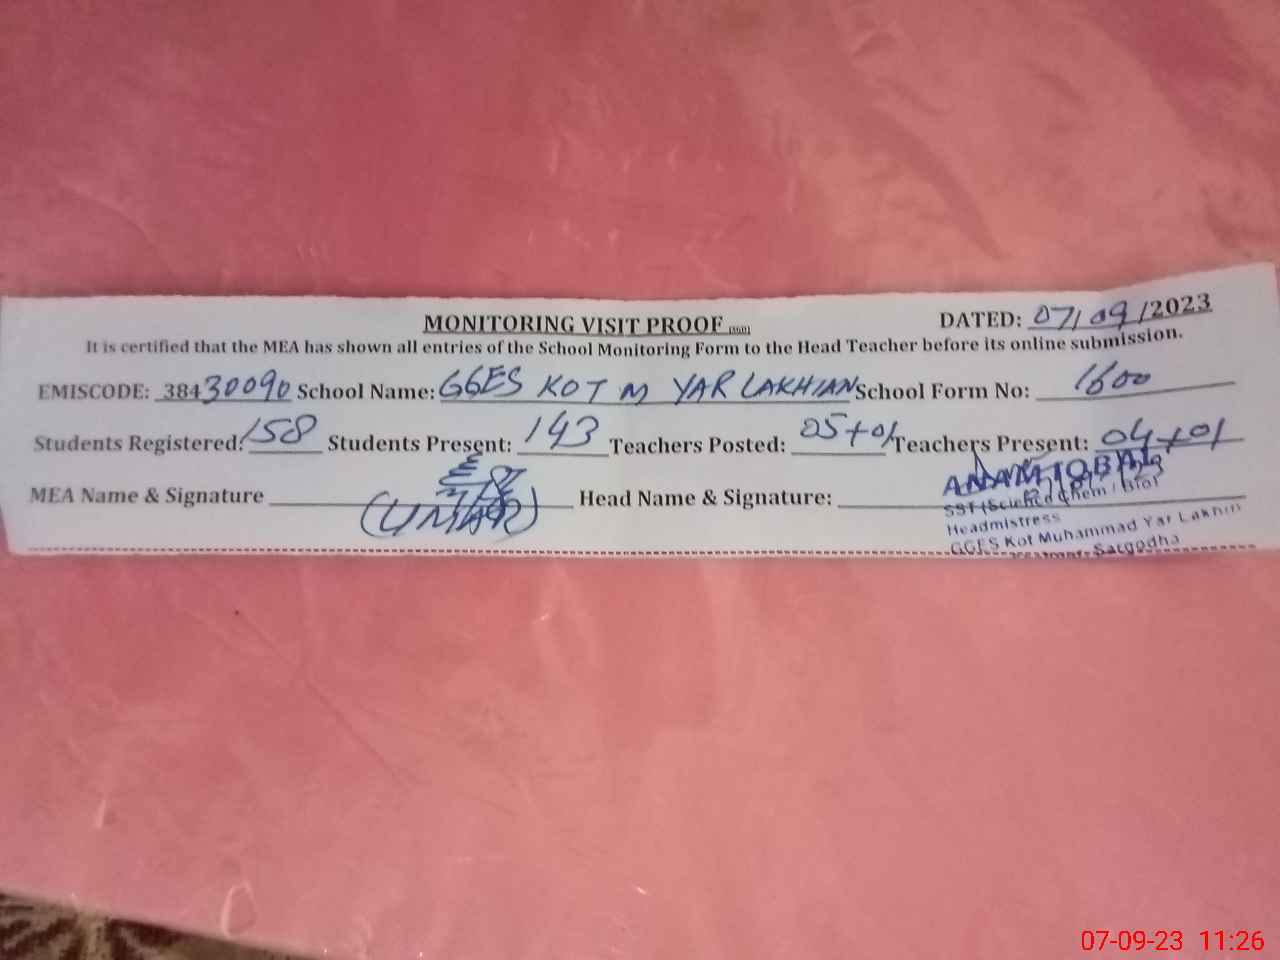 MONITORING VISIT PROOF
DATED: 07/09/2023
It is certified that the MEA has shown all entries of the School Monitoring Form to the Head Teacher before its online submission.
EMISCODE: 38430090 School Name: GGES KOT M YAR LAKHIAN School Form No: 1600
Students Registered: 158 Students Present: 143 Teachers Posted: 05+01 Teachers Present: 04+01
MEA Name & Signature (UMAR) Head Name & Signature:
ANAM IQBAL
SST (Science) Chem / Bio)
Headmistress
GGES Kot Muhammad Yar Lakhin
Sargodha
07-09-23 11:26